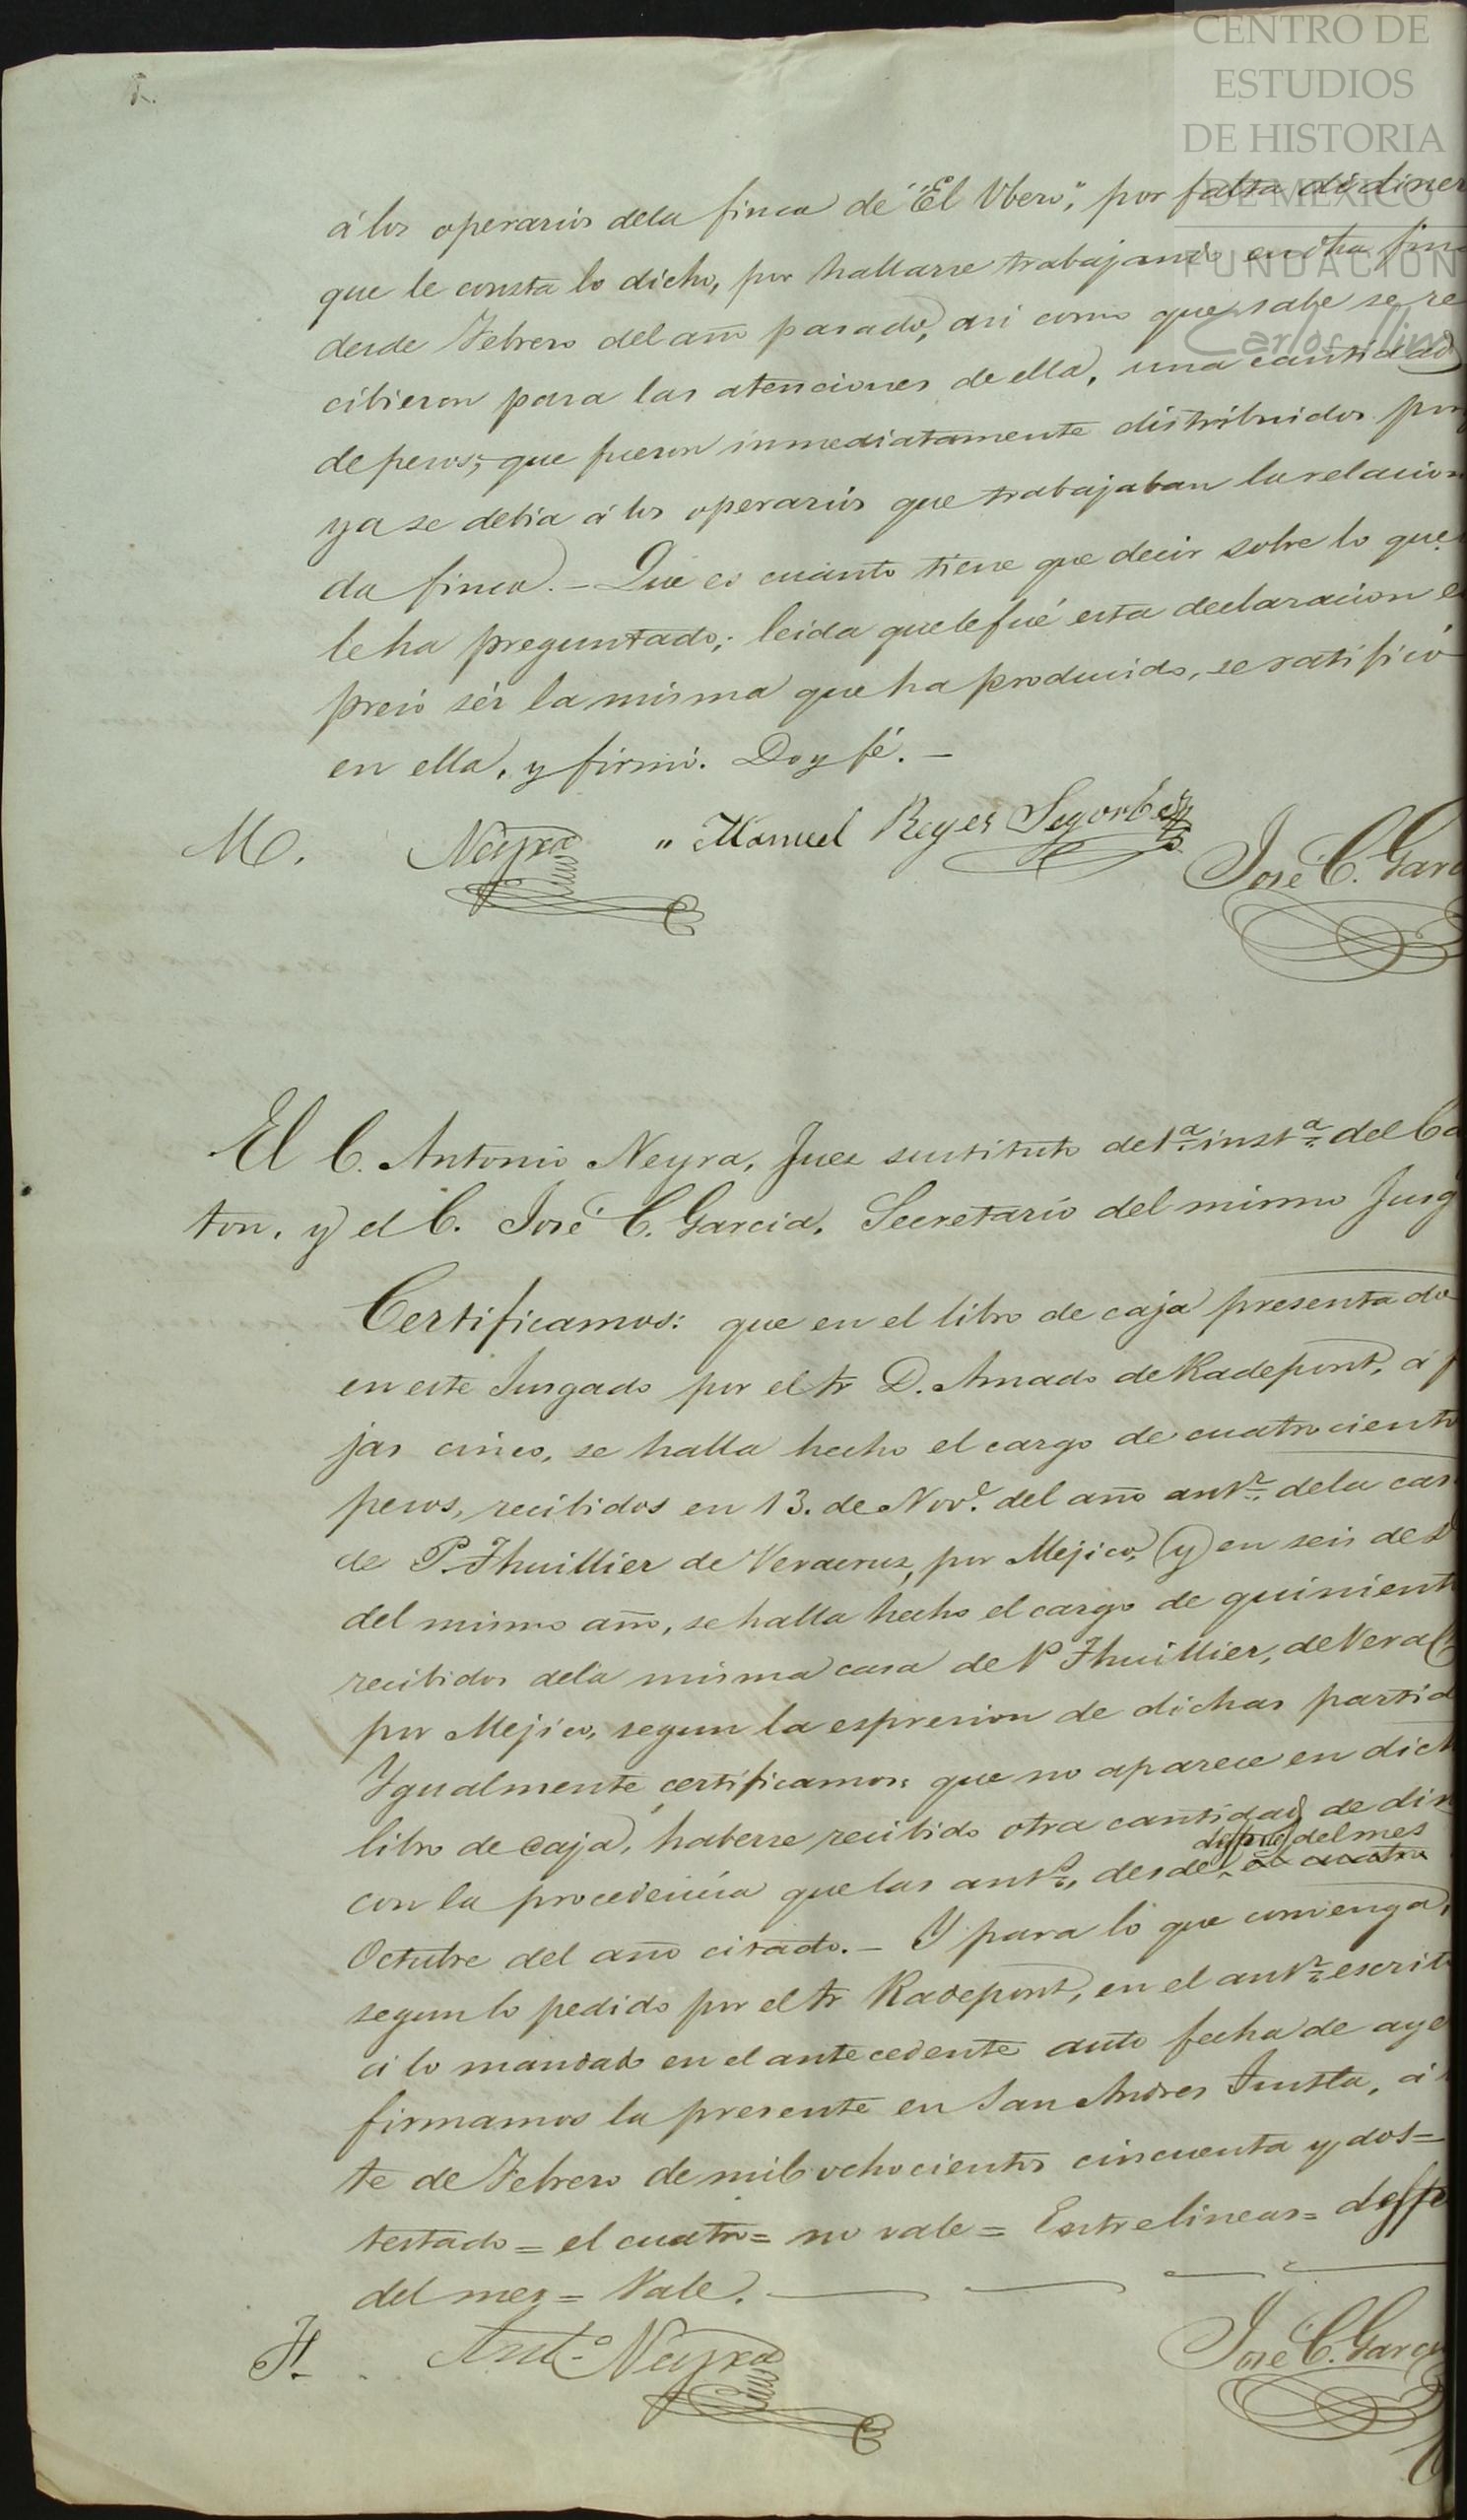 CENTRO DE
ESTUDIOS
DE HISTORIA
DE MEXICO
FUNDACION
Carlos Slim
á los operarios dela finca de "El Ubero", por falta de diner
que le consta lo dicho, por hallarse trabajando en dha fin
desde Febrero del año pasado, asi como que sabe se re
cibieron para las atenciones de ella, una cantidad
de pesos; que fueron inmediatamente distribuidos por
ya se debia á los operarios que trabajaban la relacion
da finca. - Que es cuanto tiene que decir sobre lo que
le ha preguntado; leida que le fué esta declaracion e
presó sér la misma que ha producido, se ratificó
en ella, y firmó. Doy fé. -
M. Neyra " Manuel Reyes Segorbe José C. Garc
El C. Antonio Neyra, Juez sustituto de 1ª instª del Ca
ton, y el C. José C. Garcia, Secretario del mismo Juzg
Certificamos: que en el libro de caja presentado
en este Jusgado por el Sr D. Amado de Radepont, á f
jas cinco, se halla hecho el cargo de cuatrociento
pesos, recibidos en 13. de Nove. del año antr. dela cas
de P. Thuillier de Veracruz, por Mejico, y en seis de D
del mismo año, se halla hecho el cargo de quinient
recibidos dela misma casa de P Thuillier, de Verac
por Mejico, segun la espresion de dichas partid
Ygualmente certificamos: que no aparece en dich
libro de caja, haberse recibido otra cantidad de din
despues del mes
con la procedencia que las ants., desde el cuatro
Octubre del año citado. - Y para lo que convenga,
segun lo pedido por el Sr Radepont, en el antr. escrito
á lo mandado en el antecedente auto fecha de aye
firmamos la presente en San Andres Tustla, á
te de Febrero de mil ochocientos cincuenta y dos =
testado = el cuatro = no vale = Entrelineas = despu
del mes = Vale.
F. Anto. Neyra José C. Garci